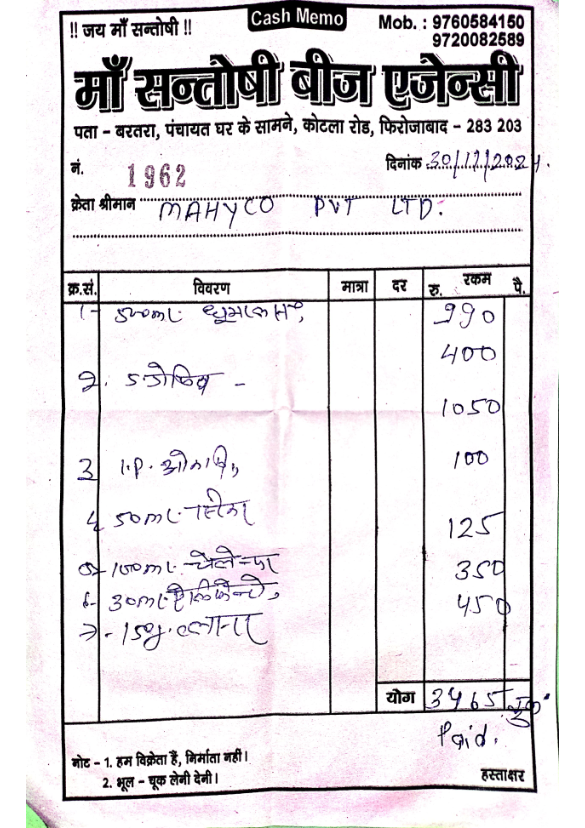 !! जय माँ सन्तोषी !!
Cash Memo
Mob. : 9760584150
9720082589
माँ सन्तोषी बीज एजेन्सी
पता - बरतरा, पंचायत घर के सामने, कोटला रोड, फिरोजाबाद - 283 203
नं. 1962
दिनांक 30/12/2024.
क्रेता श्रीमान MAHYCO PVT LTD.
क्र.सं. विवरण मात्रा दर रकम
रु. पै.
1- 500ml. 990
400
2. -
1050
3 1.P. 100
4 50ml.
125
5- 100ml. 350
6- 30ml. 450
7- 15g.
योग 3465
Paid.
नोट - 1. हम विक्रेता हैं, निर्माता नहीं।
2. भूल - चूक लेनी देनी।
हस्ताक्षर